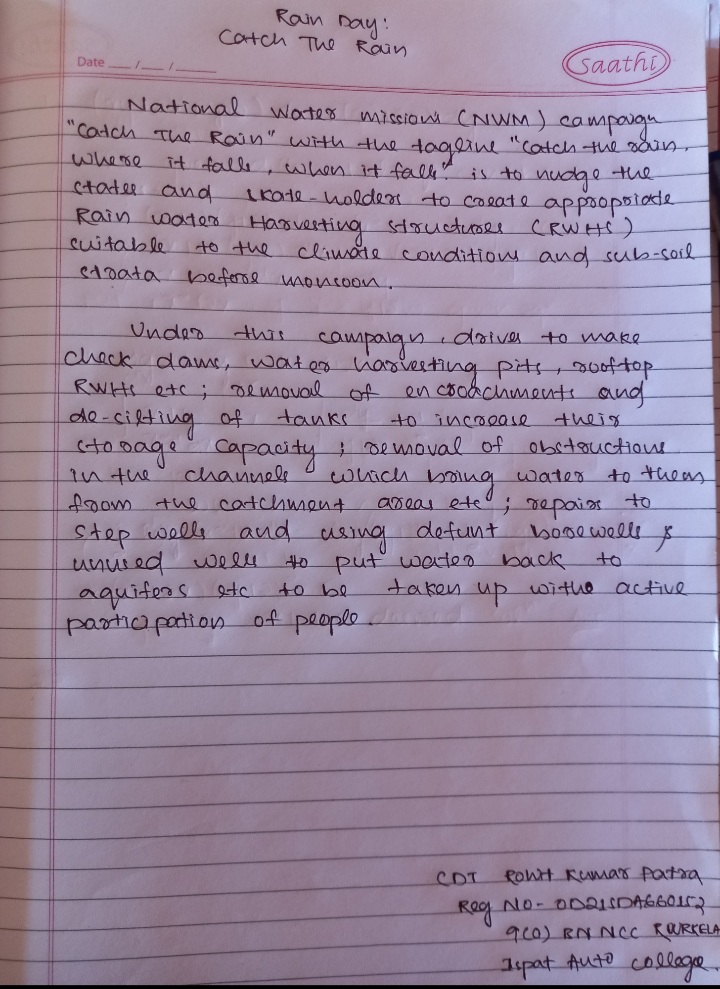 Rain Day:
Catch The Rain
Date __/__/____
Saathi
National Water missions (NWM) campaign
"Catch The Rain" with the tagline "Catch the rain,
where it falls, when it falls" is to nudge the
states and skate-holders to create appropriate
Rain water Harvesting structures (RWHS)
suitable to the climate conditions and sub-soil
strata before monsoon.
Under this campaign, drives to make
check dams, water harvesting pits, rooftop
RWHs etc; removal of encroachments and
de-cilting of tanks to increase their
storage capacity; removal of obstructions
in the channels which bring water to them
from the catchment areas etc; repairs to
step wells and using defunt borewells &
unused wells to put water back to
aquifers etc to be taken up withe active
participation of people.
CDT Rohit Kumar Patra
Reg No- OD21SDA660152
9(O) BN NCC ROURKELA
Ispat Auto College.